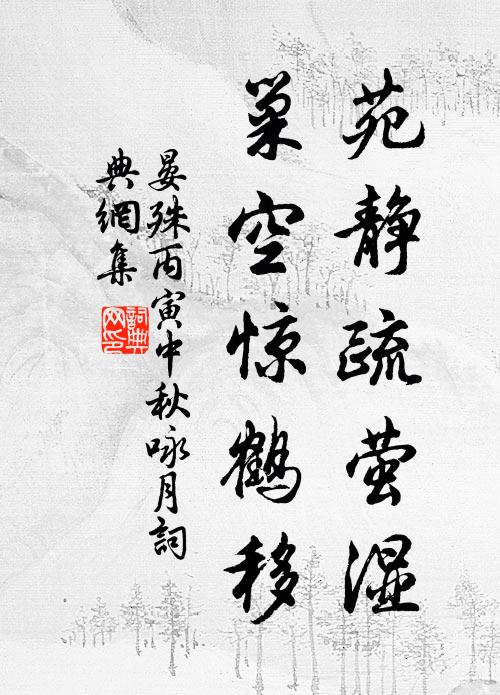 苑静疏萤湿
巢空惊鹤移
晏殊丙寅中秋咏月詞
典網集
詞典网印